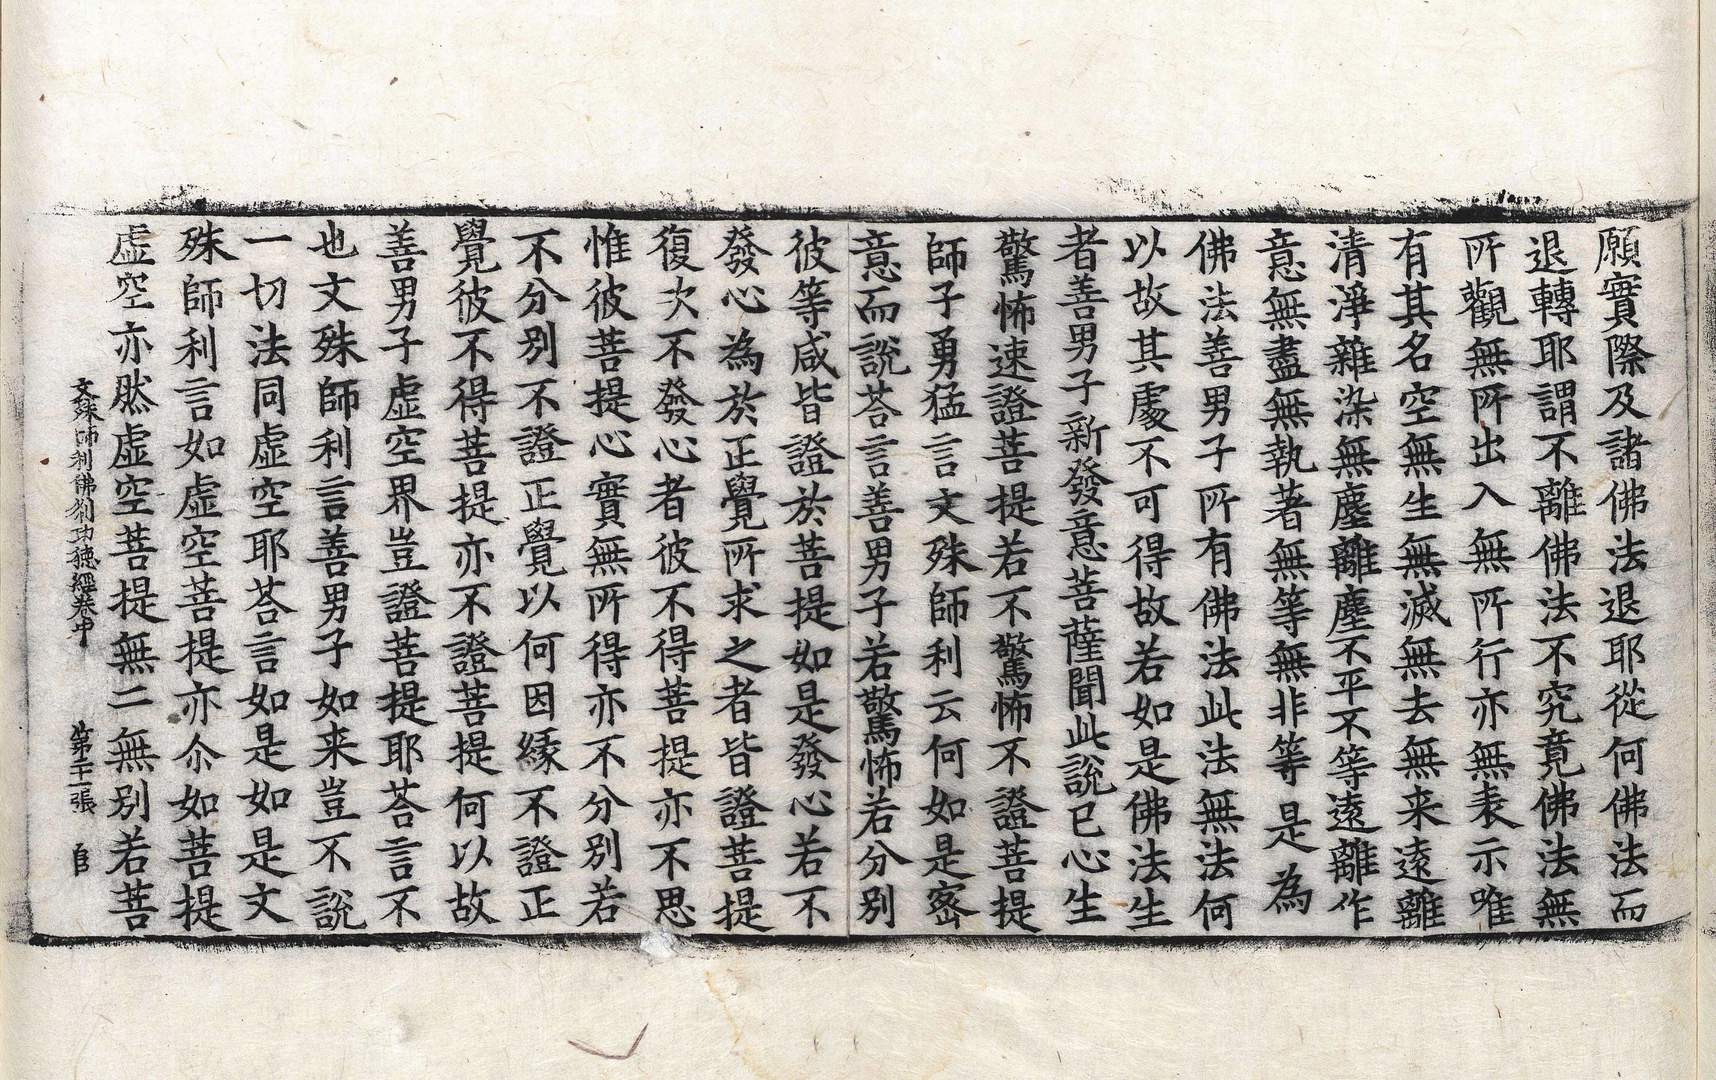 願實際及諸佛法退耶從何佛法而
退轉耶謂不離佛法不究竟佛法無
所觀無所出入無所行亦無表示唯
有其名空無生無滅無去無来遠離
清淨雜染無塵離塵不平不等遠離作
意無盡無執著無等無非等是為
佛法善男子所有佛法此法無法何
以故其處不可得故若如是佛法生
者善男子新發意菩薩聞此說已心生
驚怖速證菩提若不驚怖不證菩提
師子勇猛言文殊師利云何如是密
意而說荅言善男子若驚怖若分別
彼等咸皆證於菩提如是發心若不
發心為於正覺所求之者皆證菩提
復次不發心者彼不得菩提亦不思
惟彼菩提心實無所得亦不分別若
不分別不證正覺以何因緣不證正
覺彼不得菩提亦不證菩提何以故
善男子虛空界豈證菩提耶荅言不
也文殊師利言善男子如来豈不說
一切法同虛空耶荅言如是如是文
殊師利言如虛空菩提亦尒如菩提
虛空亦然虛空菩提無二無別若菩
文殊師利佛刹功德經卷中 第二十二張 官